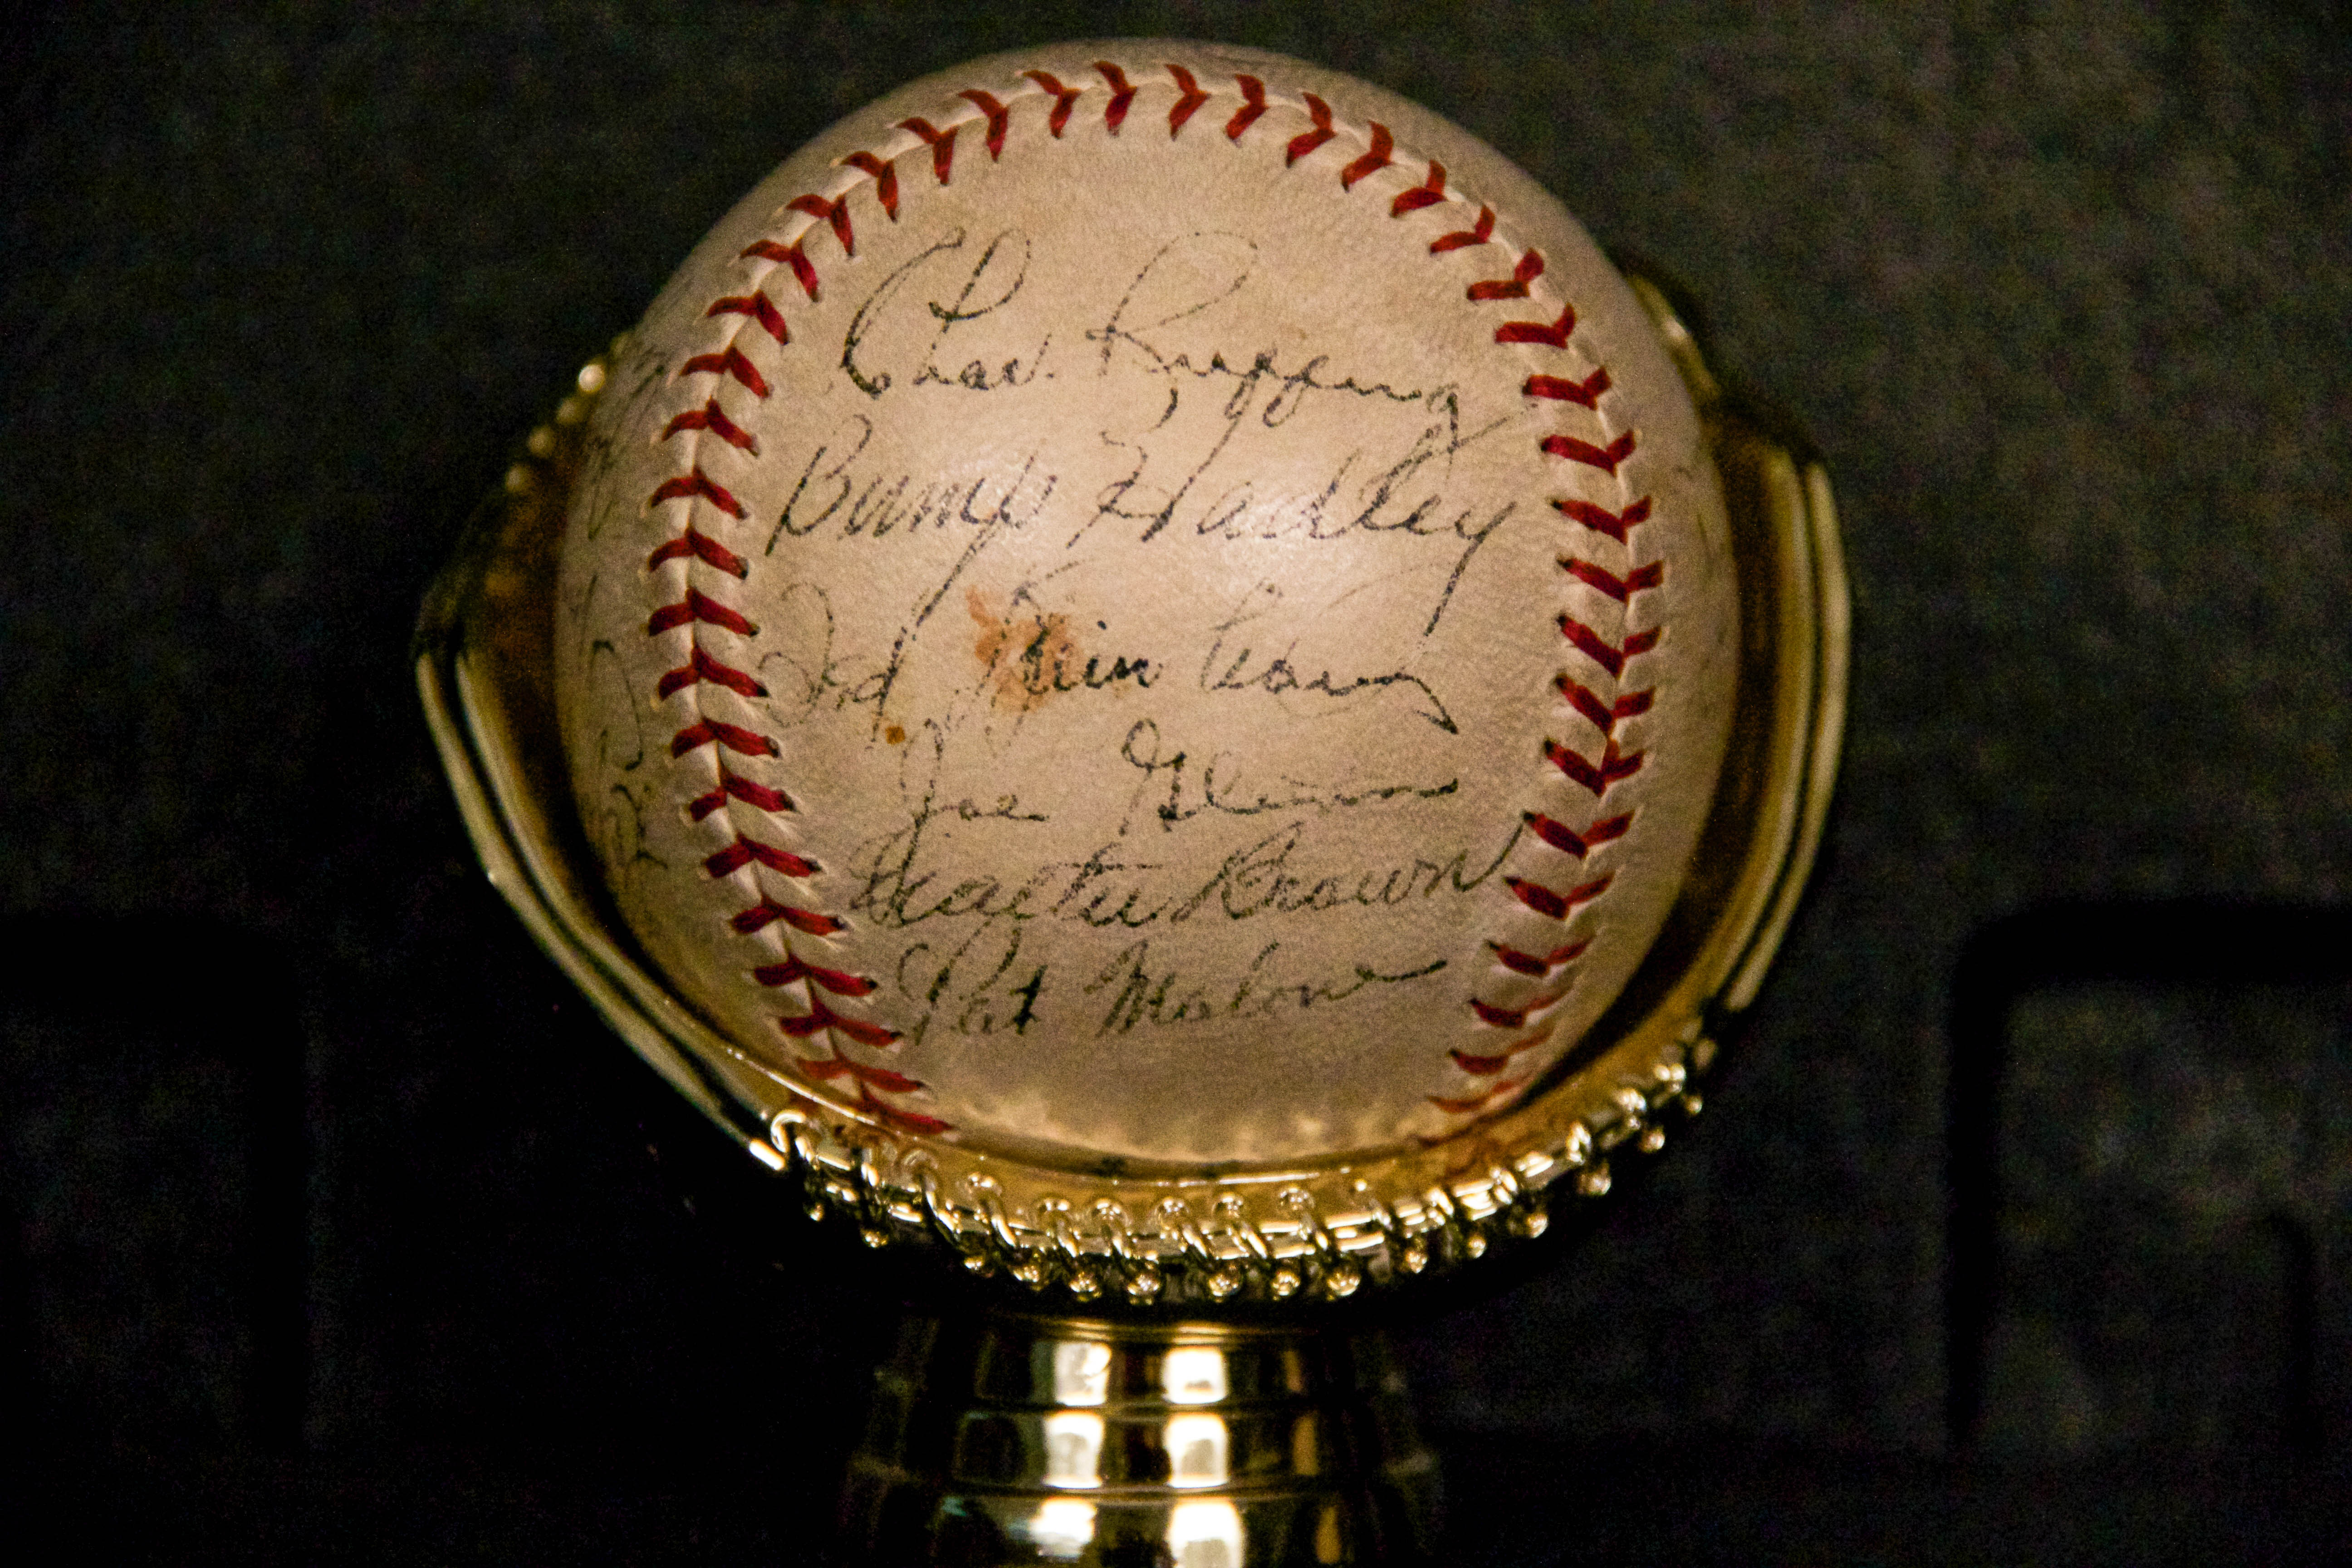 Chas. Ruffing
Bump Hadley
Ted Kleinhans
Joe Glenn
Walter Brown
Pat Malone